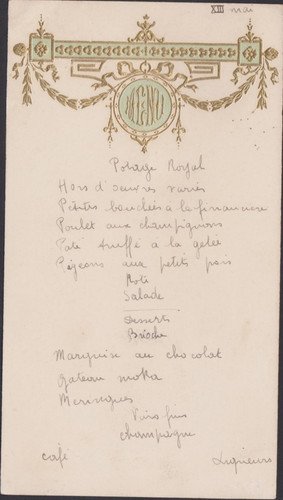 XIII mai
MENU
Potage Royal
Hors d'œuvres variés
Petites bouchées à la financière
Poulet aux champignons
Pate truffé à la gelée
Pigeons aux petits pois
Roti
Salade
Desserts
Brioche
Marquise au chocolat
Gateau moka
Meringues
Vins fins
champagne
café
Liqueurs